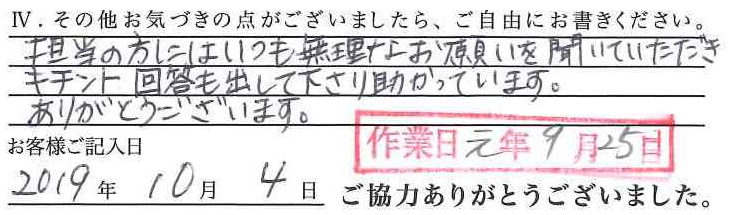 Ⅳ．その他お気づきの点がございましたら、ご自由にお書きください。
担当の方にはいつも無理なお願いを聞いていただき
キチント回答も出して下さり助かっています。
ありがとうございます。
お客様ご記入日
作業日元年9月25日
2019年10月4日 ご協力ありがとうございました。